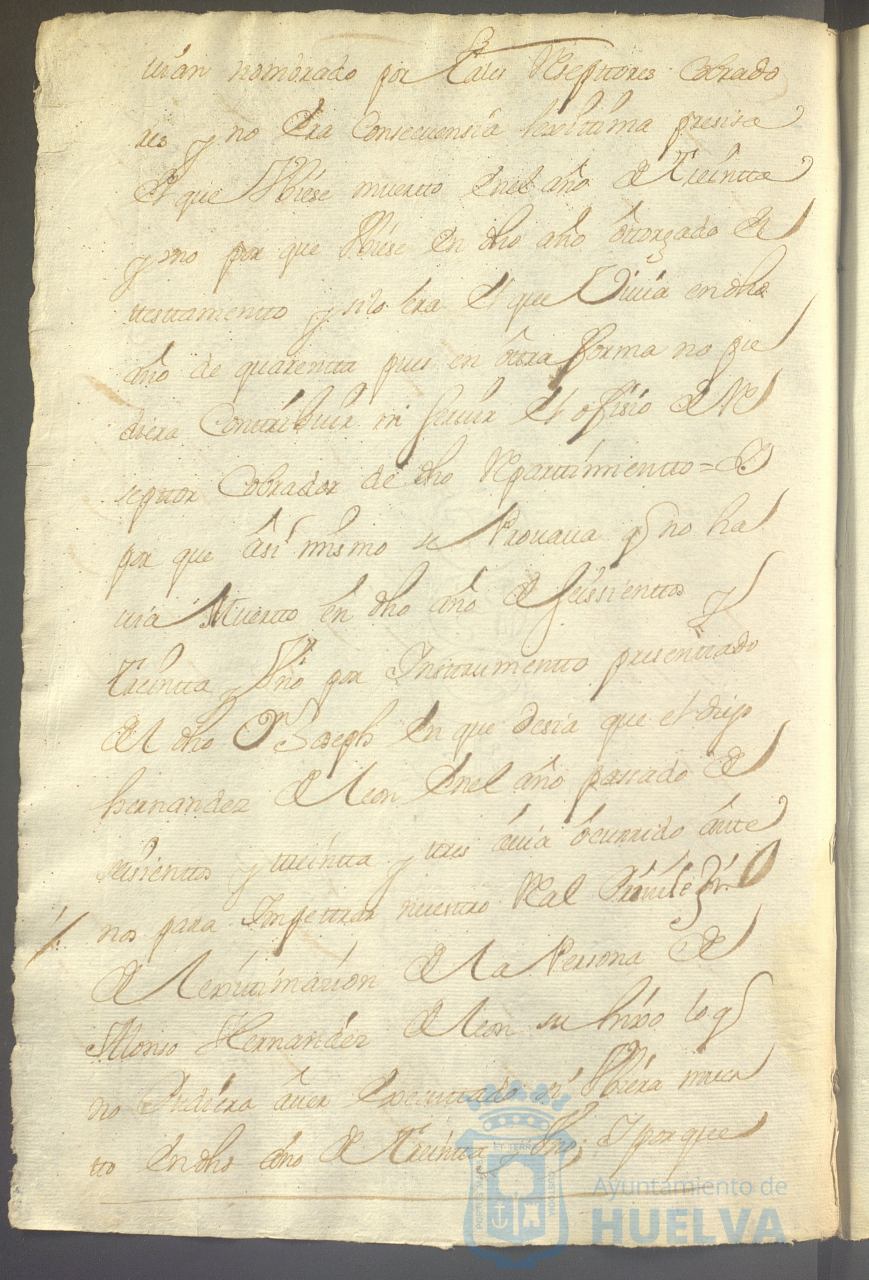 uian nombrado por tales Reseptores Cobrado
res y no era Consecuensia lexitima presisa
el que Vbiese muerto enel año de treintta
y uno por que Vbiese en dho año ôttorgado el
testtamentto y silo era el que Viuia en dho
año de quarentta pues en ôttra forma no pu
diera Conttribuir ni seruir el ofisio de Re
septtor Cobrador de dho Reparttimientto = Y
por que âsi mismo se Prouaua q no ha
uia Muertto en dho año de seissienttos y
treintta y Vno por Instrumentto presenttado
del dho Dn Joseph en que desia que el dijo
hernandez de leon enel año passado de
seisienttos y treintta y tres âuia ôcurrido ântte
nos para Impettrar nuestro Real Priuilexio
de lexitimazion de la Persona de
Alonso Hernandez de leon su hixo lo q
no Pudiera âuer executtado si Vbiera muer
tto en dho año de treintta y Vno; Y porque
Ayuntamiento de
HUELVA